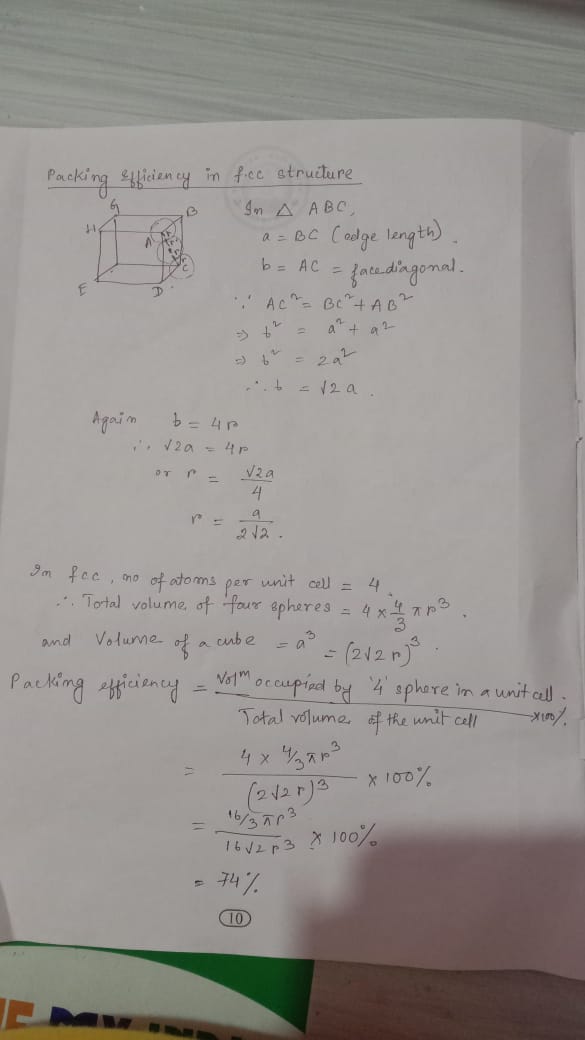 Packing Efficiency in f.cc structure
In △ ABC,
a = BC (edge length).
b = AC = face diagonal.
∵ AC² = BC² + AB²
⇒ b² = a² + a²
⇒ b² = 2a²
∴ b = √2 a.
G
B
H
A
C
E
D
Again b = 4r
∴ √2a = 4r
or r = √2a / 4
r = a / 2√2.
In fcc, no of atoms per unit cell = 4.
∴ Total volume of four spheres = 4 × 4/3 πr³.
and Volume of a cube = a³ = (2√2 r)³.
Packing efficiency = Volm occupied by '4' sphere in a unit cell. / Total volume of the unit cell ×100%.
= 4 × 4/3 πr³ / (2√2 r)³ × 100%
= 16/3 πr³ / 16√2 r³ × 100%
= 74%
10